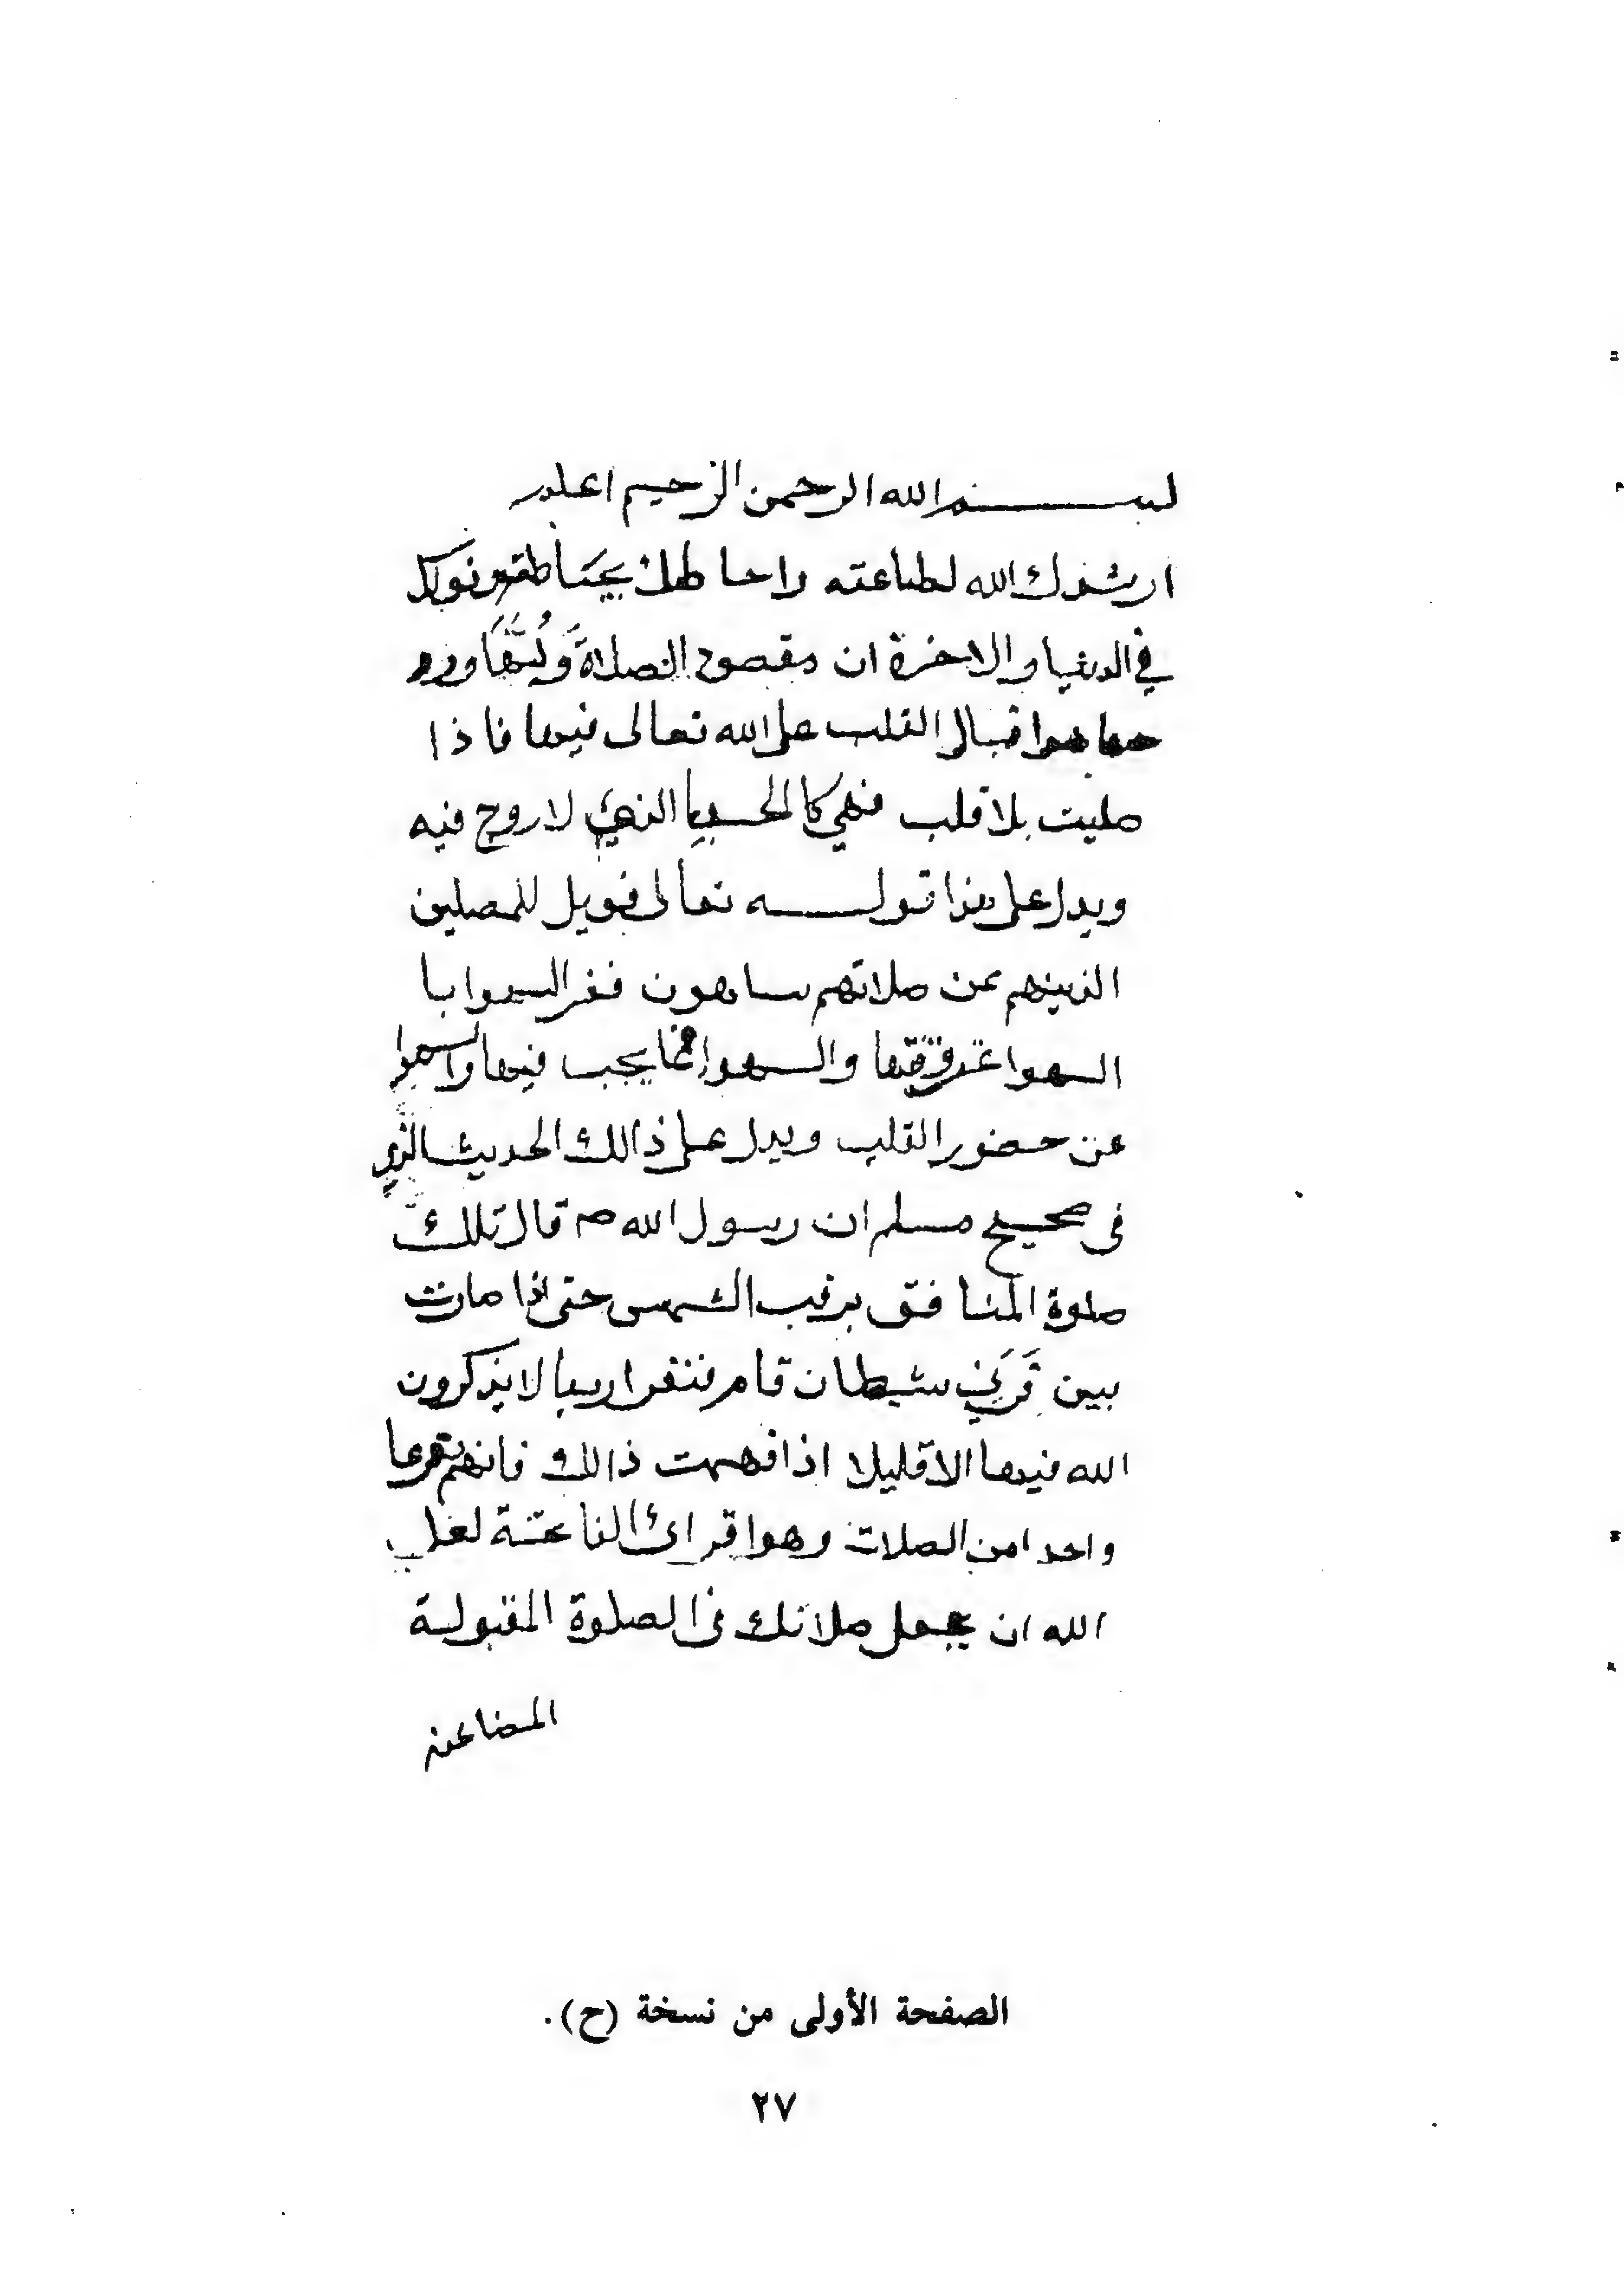 بسم الله الرحمن الرحيم اعلم
ارشدك الله لطاعته واحاطك بحياطته
في الدنيا والاخرة ان مقصود الصلاة ولبها ورو
حها هوا قبال القلب على الله تعالى فيها فاذا
صليت بلا قلب فهي كالجسد الذي لا روح فيه
ويدل على هذا قوله تعالى فويل للمصلين
الذينهم عن صلاتهم ساهون ففسر السهوا با
السهوا عن وقتها والسهوا عما يجب فيها والسهوا
عن حضور القلب ويدل على ذالك الحديث الذي
في صحيح مسلم ان رسول الله صم قال تلك
صلوة المنافق يرقب الشمس حتى اذا صارت
بين قرني شيطان قام فنقرا ربعا لا يذكرون
الله فيها الا قليلا اذا فهمت ذالك فافهم
واحدا من الصلات وهوا قرائ الفاتحتة لعل
الله ان يجعل صلاتك في الصلوة المقبولة
المضاعف
الصفحة الأولى من نسخة (ح).
٢٧